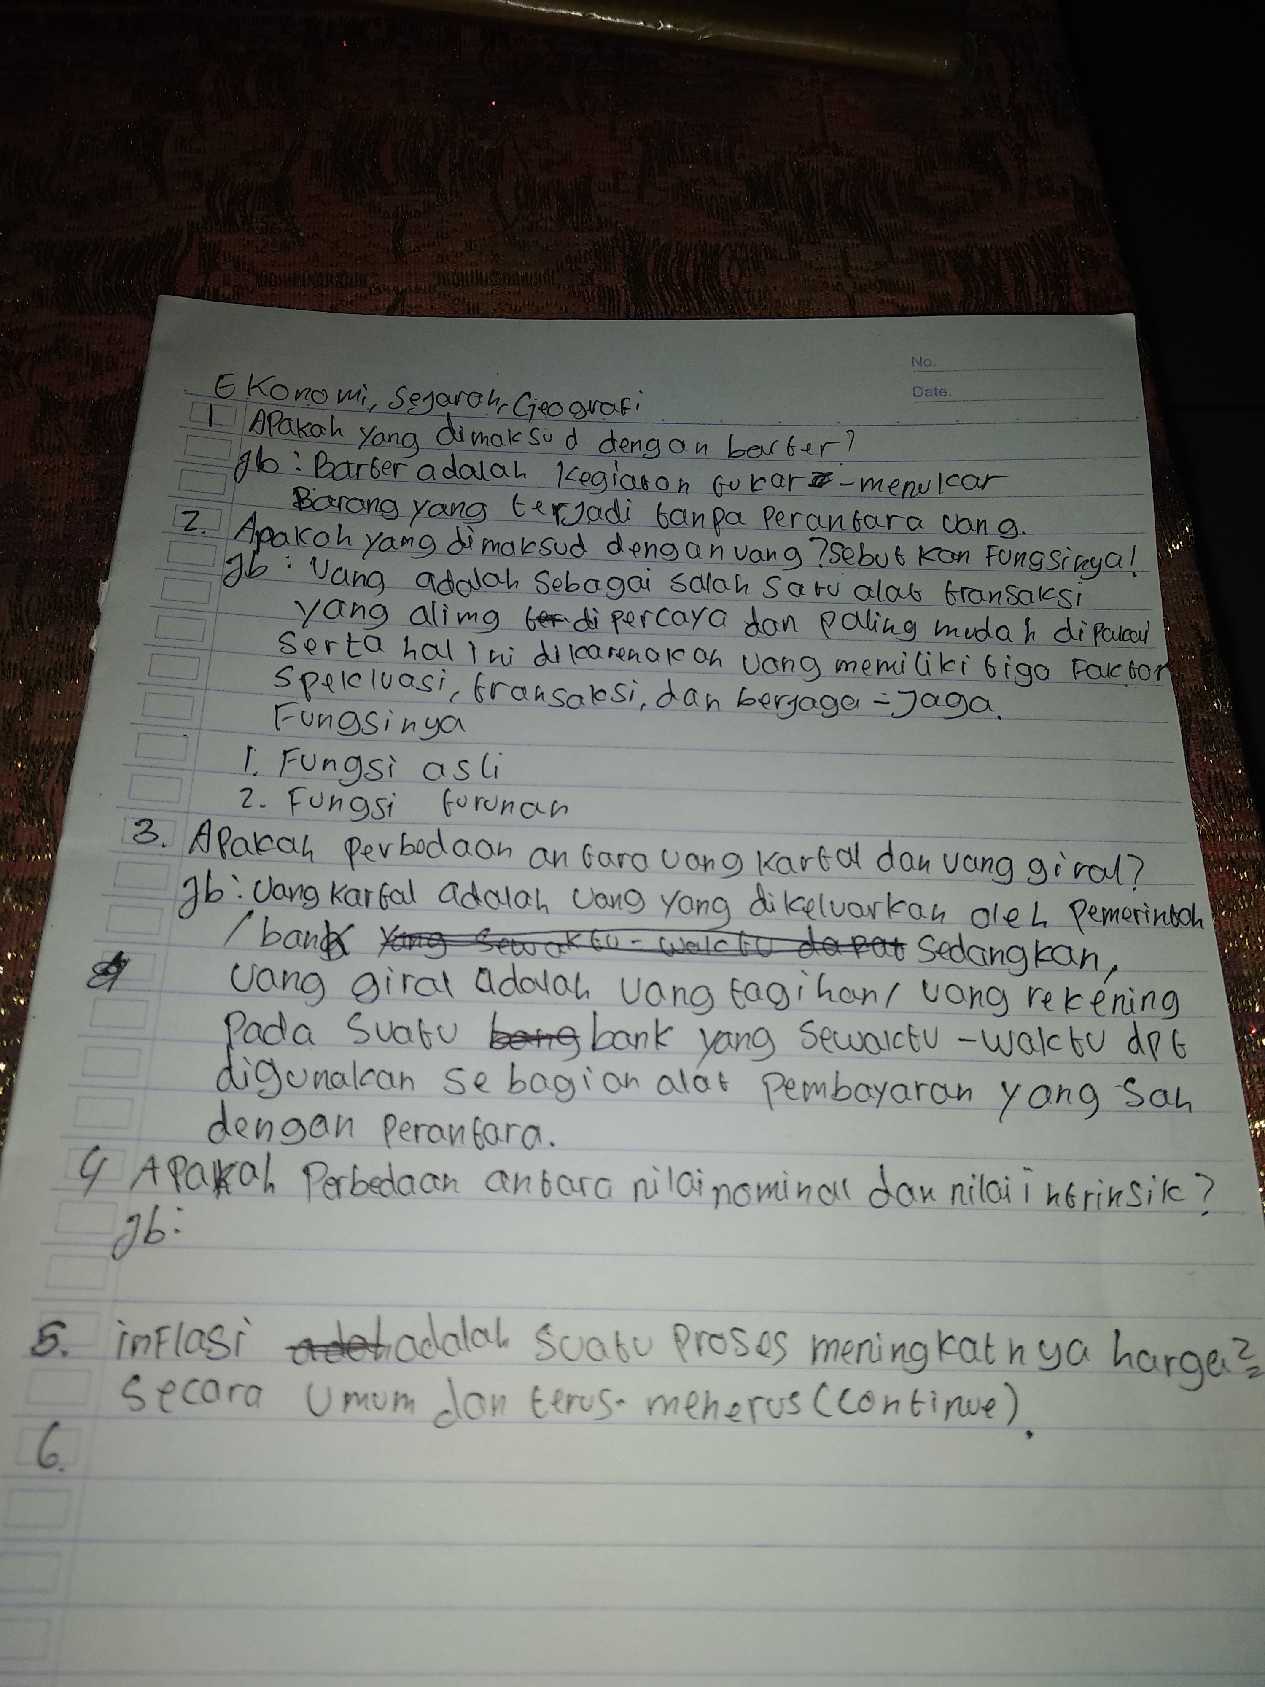 No.
Date.
Ekonomi, Sejarah, Geografi
1 Apakah yang dimaksud dengan barter?
jb : Barter adalah kegiatan tukar - menukar
Barang yang terjadi tanpa perantara uang.
2. Apakah yang dimaksud dengan uang? Sebutkan Fungsinya!
jb : Uang adalah sebagai salah satu alat transaksi
yang alimg ter dipercaya dan paling mudah dipakai
serta hal ini dikarenakan uang memiliki tiga Faktor
Spekluasi, transaksi, dan berjaga-jaga.
Fungsinya
1. Fungsi asli
2. Fungsi turunan
3. Apakah perbedaan antara uang kartal dan uang giral?
jb : Uang kartal adalah uang yang dikeluarkan oleh Pemerintah
/ bank yang sewaktu-waktu dapat sedangkan,
uang giral adalah uang tagihan/ uang rekening
pada suatu bang bank yang sewaktu-waktu dpt
digunakan sebagian alat pembayaran yang sah
dengan perantara.
4 Apakah Perbedaan antara nilai nominal dan nilai intrinsik?
jb :
5. inflasi adalah suatu proses meningkatnya harga2
secara umum dan terus-menerus (continue).
6.